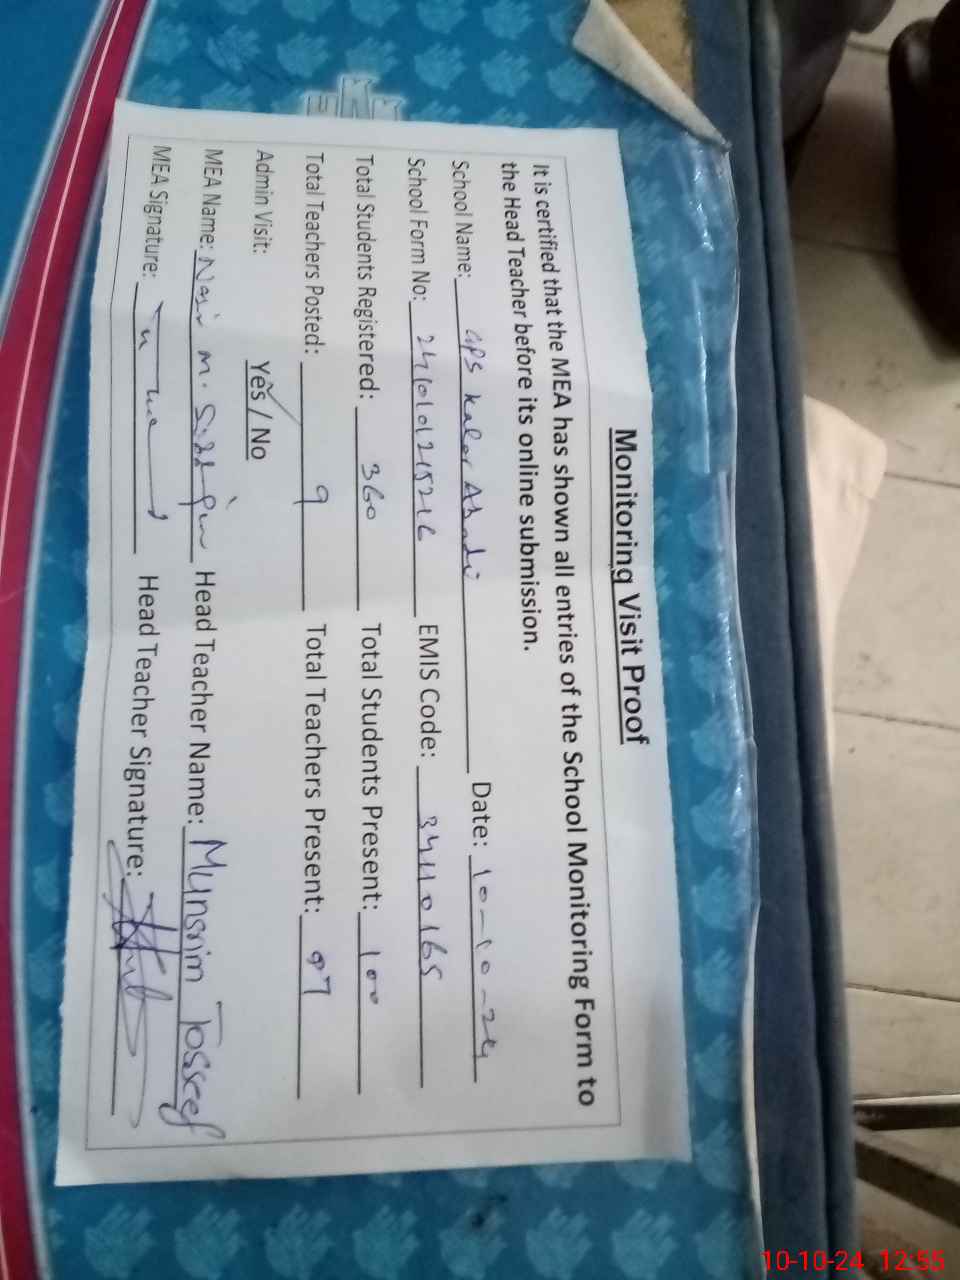 Monitoring Visit Proof
It is certified that the MEA has shown all entries of the School Monitoring Form to
the Head Teacher before its online submission.
School Name: GPS Kaler Abadi Date: 10-10-24
School Form No: EMIS Code: 34110165
Total Students Registered: 360 Total Students Present: 100
Total Teachers Posted: 9 Total Teachers Present: 07
Admin Visit: Yes / No
MEA Name: Nasir M. Head Teacher Name: Munsrim Toseef
MEA Signature: Head Teacher Signature:
10-10-24 12:55